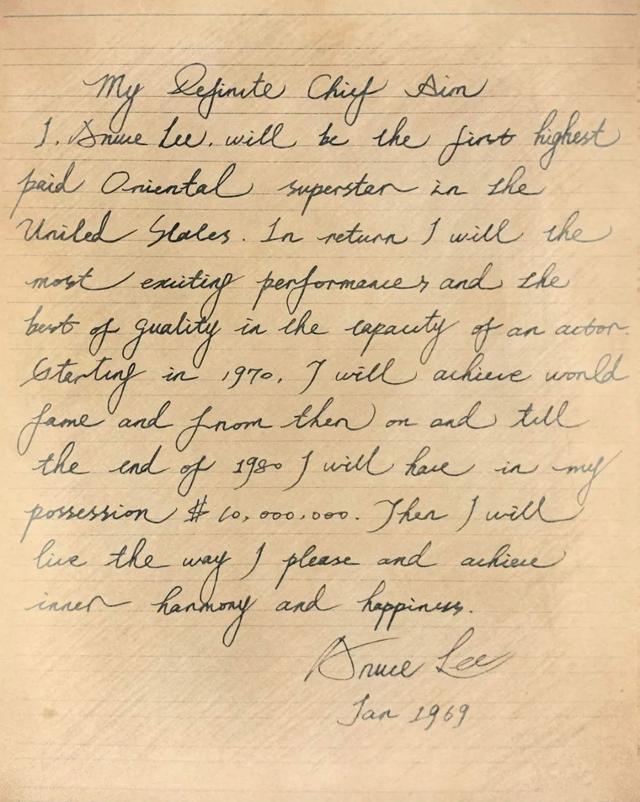 My Definite Chief Aim
I, Bruce Lee, will be the first highest
paid Oriental superstar in the
United States. In return I will the
most exciting performances and the
best of quality in the capacity of an actor.
Starting in 1970, I will achieve world
fame and from then on and till
the end of 1980 I will have in my
possession $ 10,000,000. Then I will
live the way I please and achieve
inner harmony and happiness.
Bruce Lee
Jan 1969